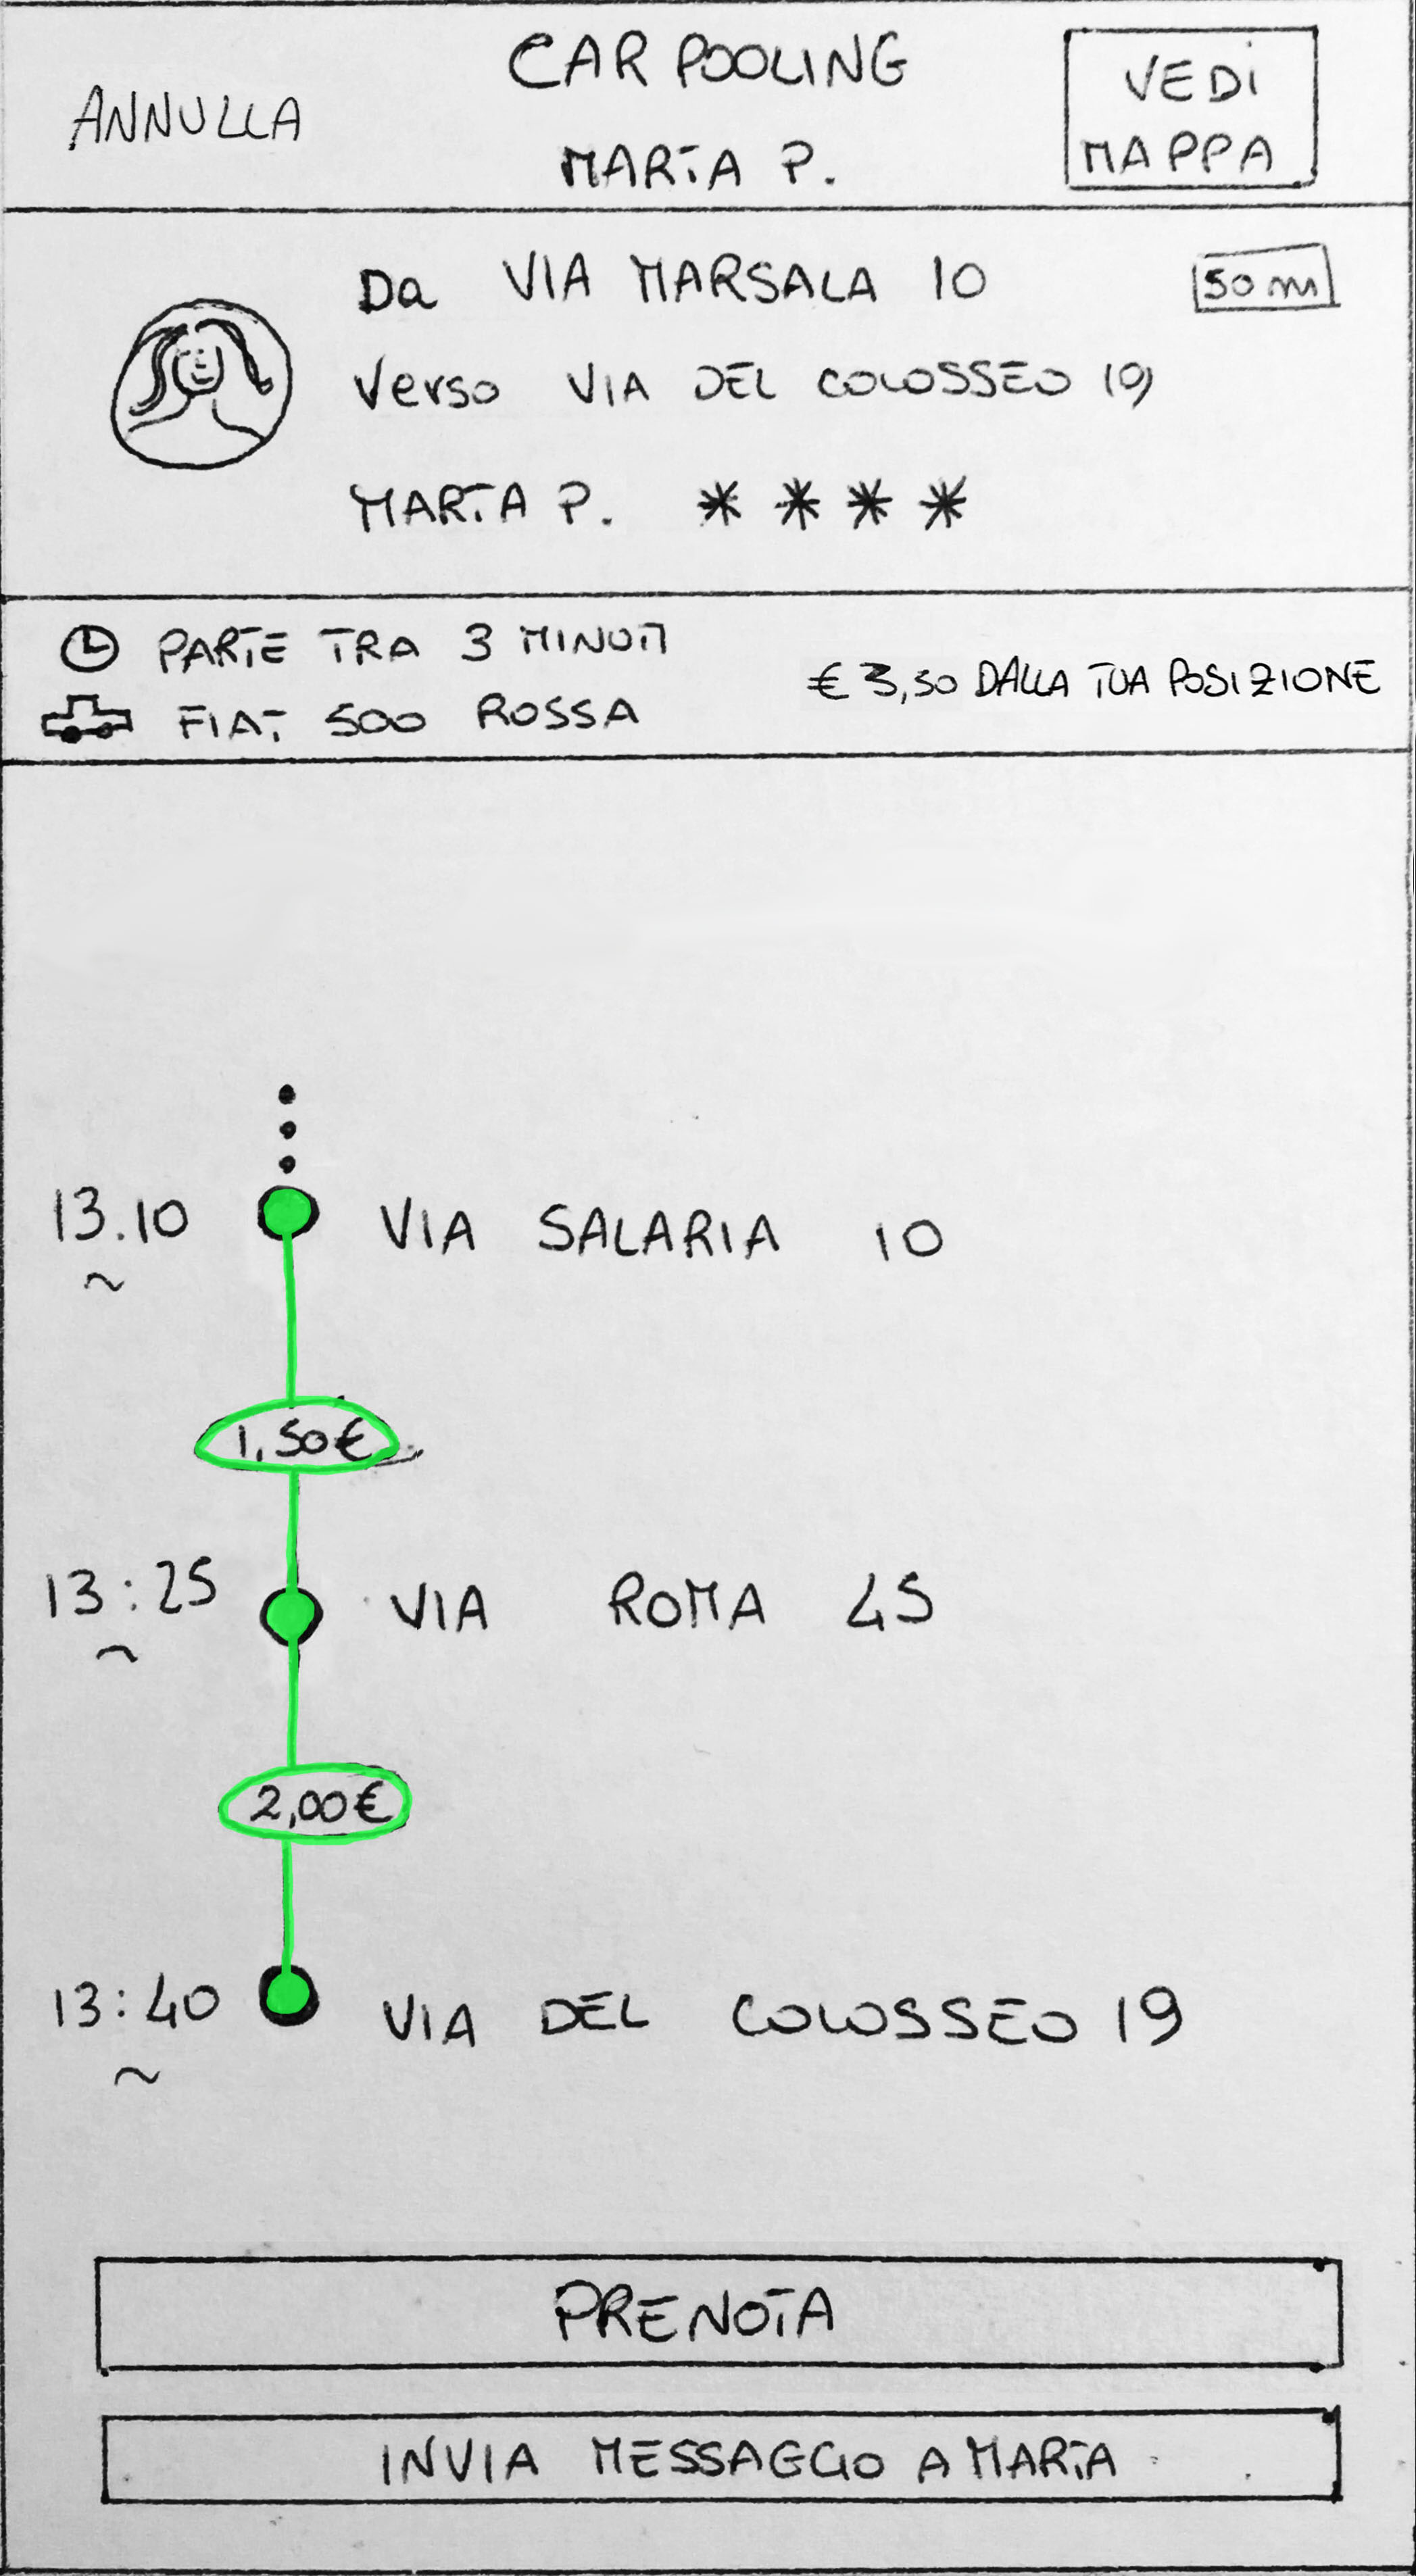 CAR POOLING
ANNULLA
MARTA P.
VEDI
MAPPA
Da VIA MARSALA 10
50 m
Verso VIA DEL COLOSSEO 19
MARTA P. * * * *
PARTE TRA 3 MINUTI
€ 3,50 DALLA TUA POSIZIONE
FIAT 500 ROSSA
13.10 VIA SALARIA 10
~
1,50€
13:25 VIA ROMA 45
~
2,00€
13:40 VIA DEL COLOSSEO 19
~
PRENOTA
INVIA MESSAGGIO A MARTA